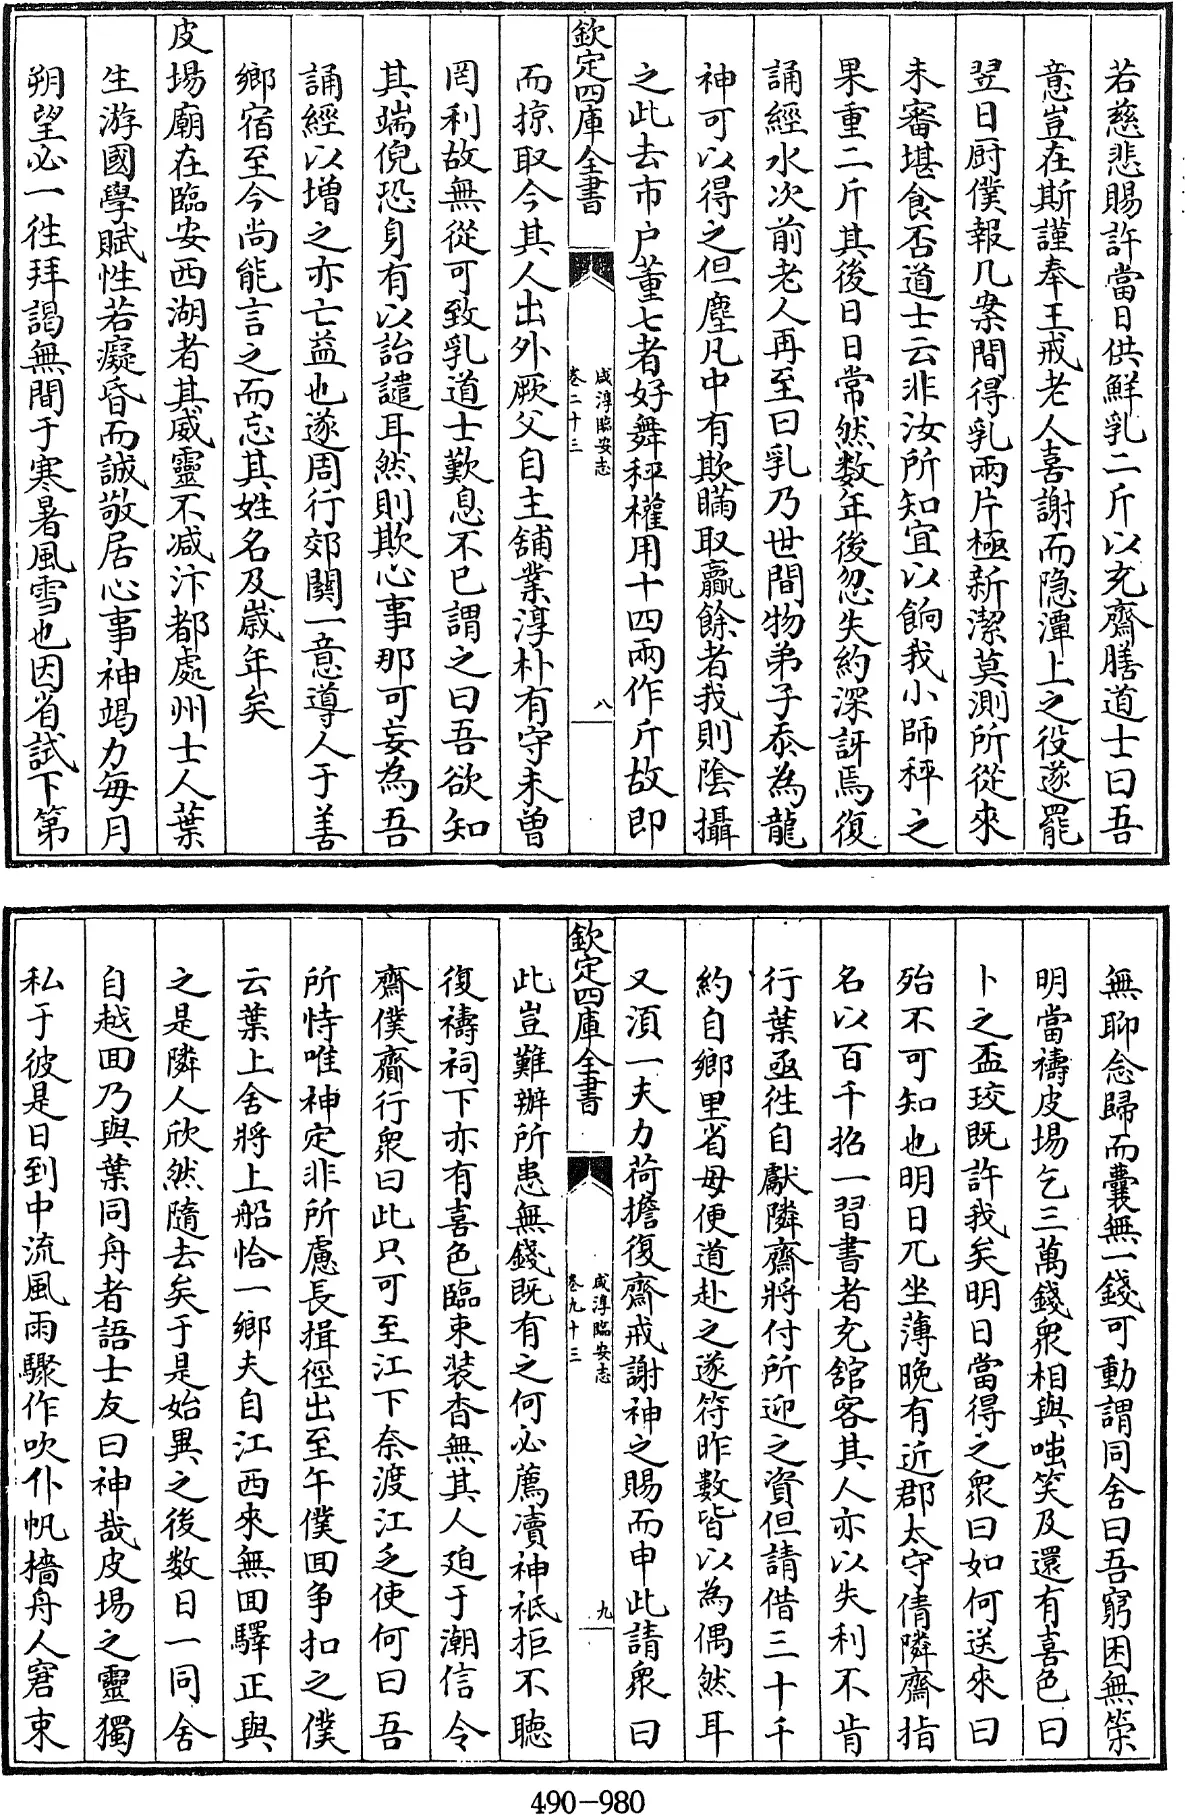 若慈悲賜許當日供鮮乳二斤以充齋膳道士曰吾
意豈在斯謹奉王戒老人喜謝而隐潭上之役遂罷
翌日厨僕報几案間得乳兩片極新潔莫測所從來
未審堪食否道士云非汝所知宜以餉我小師秤之
果重二斤其後日日常然數年後忽失約深訝焉復
誦經水次前老人再至曰乳乃世間物弟子忝為龍
神可以得之但塵凡中有欺瞞取贏餘者我則陰攝
之此去市户董七者好舞秤權用十四兩作斤故即
欽定四庫全書
咸淳臨安志
卷二十三
八
而掠取今其人出外厥父自主舖業淳朴有守未曽
罔利故無從可致乳道士歎息不已謂之曰吾欲知
其端倪恐身有以詒譴耳然則欺心事那可妄為吾
誦經以增之亦亡益也遂周行郊關一意導人于善
鄉宿至今尚能言之而忘其姓名及嵗年矣
皮塲廟在臨安西湖者其威靈不减汴都處州士人葉
生游國學賦性若癡昏而誠敬居心事神竭力每月
朔望必一徃拜謁無間于寒暑風雪也因省試下第
無聊念歸而囊無一錢可動謂同舍曰吾窮困無策
明當禱皮塲乞三萬錢衆相與嗤笑及還有喜色曰
卜之盃珓既許我矣明日當得之衆曰如何送來曰
殆不可知也明日兀坐薄晚有近郡太守倩隣齋指
名以百千招一習書者充舘客其人亦以失利不肯
行葉亟徃自獻隣齋將付所迎之資但請借三十千
約自鄉里省母便道赴之遂符昨數皆以為偶然耳
又湏一夫力荷擔復齋戒謝神之賜而申此請衆曰
欽定四庫全書
咸淳臨安志
卷九十三
九
此豈難辦所患無錢既有之何必薦瀆神祇拒不聴
復禱祠下亦有喜色臨束装杳無其人廹于潮信令
齋僕齎行衆曰此只可至江下奈渡江乏使何曰吾
所恃唯神定非所慮長揖徑出至午僕囬争扣之僕
云葉上舍將上船恰一鄉夫自江西來無囬驛正與
之是隣人欣然隨去矣于是始異之後数日一同舍
自越囬乃與葉同舟者語士友曰神哉皮塲之靈獨
私于彼是日到中流風雨驟作吹仆帆檣舟人窘束
490-980